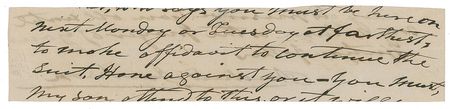 says you must be here on
next Monday or Tuesday at farthest,
to make affidavit to continue the
suit, Hone against you – you must,
My son attend to this, or it will